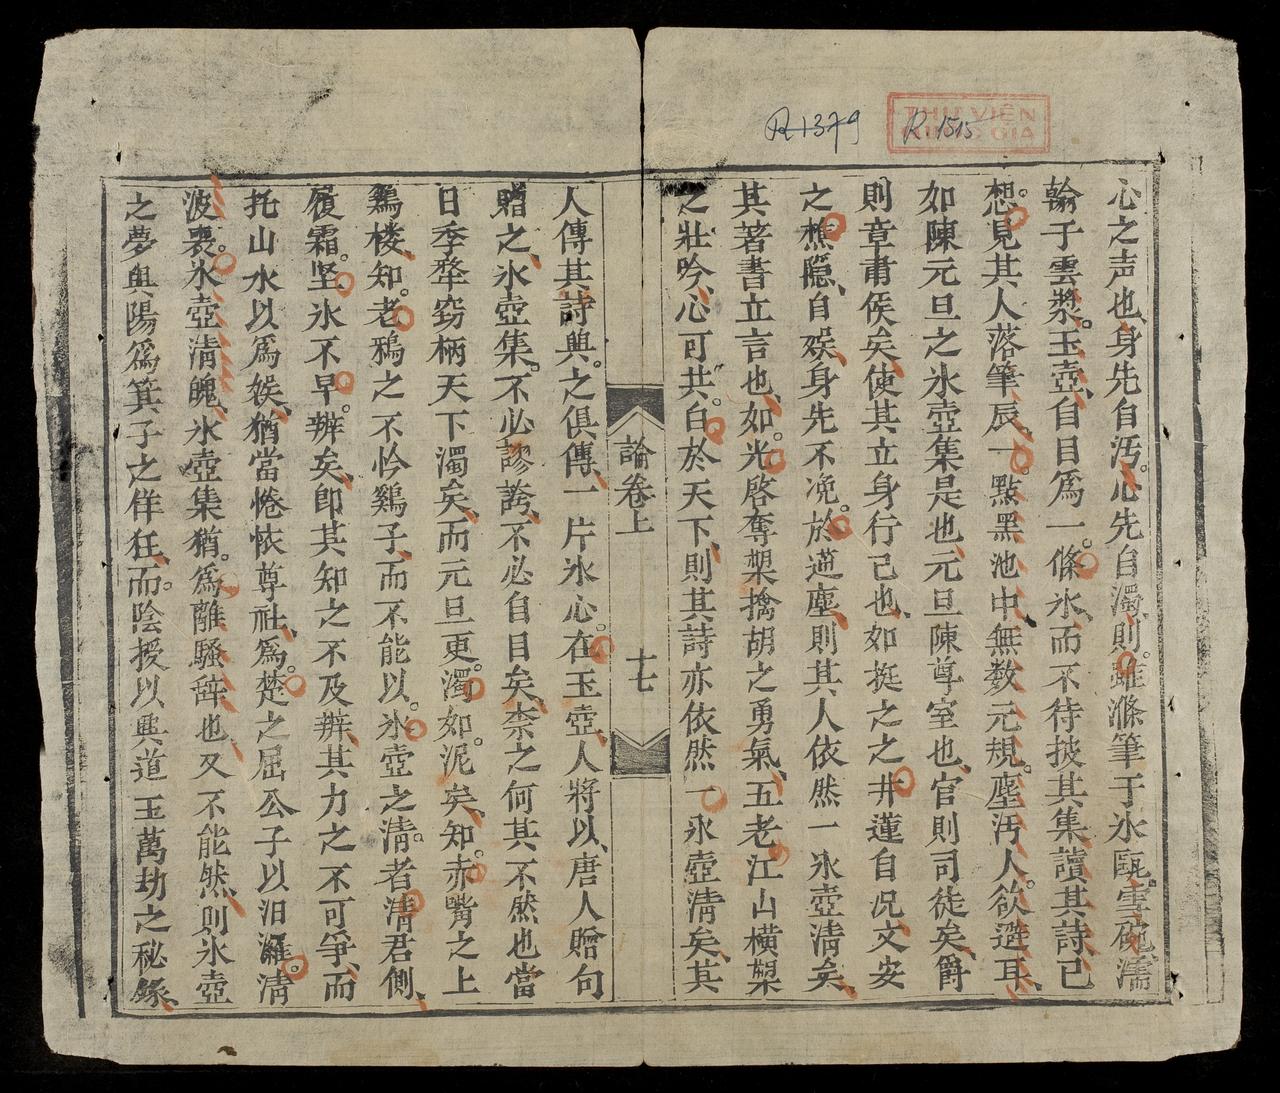 R1379
THƯ VIỆN
QUỐC GIA
R.1515
心之声也身先自汚心先自濁則雖滌筆于氷甌雪碗濡
翰于雲漿玉壺自目爲一條氷而不待披其集讀其詩已
想見其人落筆辰一點黑池中無数元規塵汚人欲避耳
如陳元旦之氷壺集是也元旦陳尊室也官則司徒矣爵
則章肅侯矣使其立身行己也如挺之之井蓮自况文安
之樵隐自娱身先不凂於𬨨塵則其人依然一氷壺清矣
其著書立言也如光啓奪槊擒胡之勇氣五老江山橫槊
之壯吟心可共白於天下則其詩亦依然一氷壺清矣其
人傳其詩與之俱傳一片氷心在玉壺人將以唐人贈句
贈之氷壺集不必謬誇不必自目矣柰之何其不然也當
日季犛窃柄天下濁矣而元旦更濁如泥矣知赤嘴之上
鷄楼知老鴉之不怜鷄子而不能以氷壺之清者清君側
履霜坚氷不早辨矣即其知之不及辨其力之不可爭而
托山水以爲娱猶當惓恢尊社爲楚之屈公子以汨羅清
波裹氷壺清魄氷壺集猶爲離騷辞也又不能然則氷壺
之夢與陽爲箕子之佯狂而陰授以興道王萬劫之秘錄
論卷上
十七